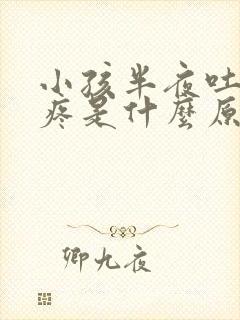 小孩半夜吐
疼是什麼原
卿九夜